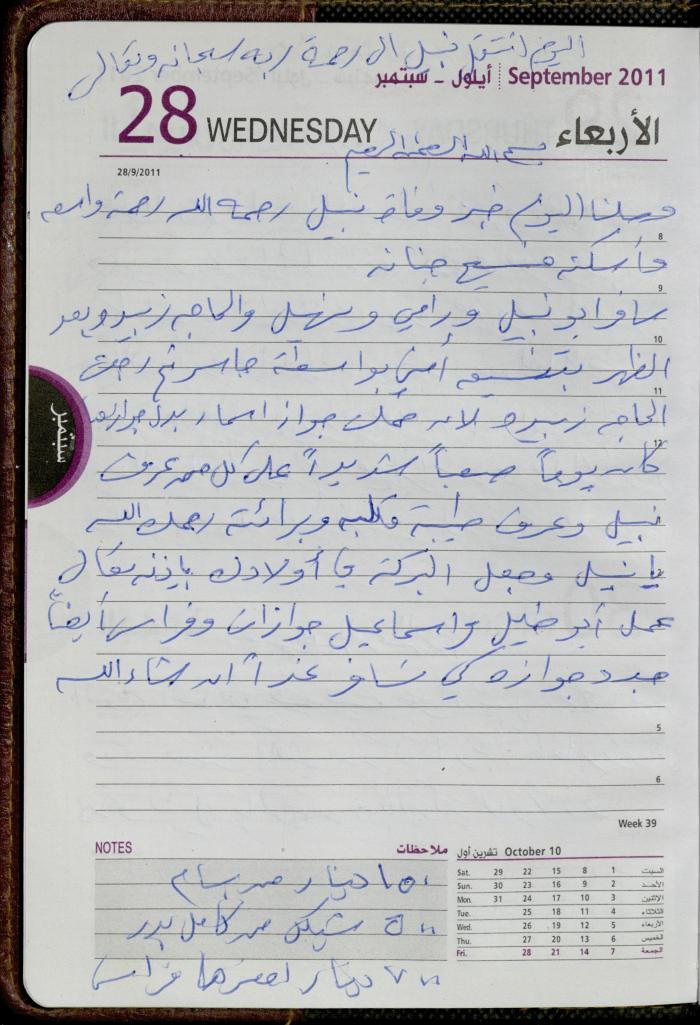 اليوم انتقل نبيل الى رحمة ربه سبحانه وتعالى
أيلول - سبتمبر September 2011
28 WEDNESDAY الأربعاء
بسم الله الرحمن الرحيم
28/9/2011
وصلنا اليوم خبر وفاة نبيل رحمه الله رحمة واسعة
8
وأسكنه فسيح جنانه
9
سافر ابو نبيل ورامي وسهيل والحاجه زبيده وبعد
10
الظهر بتنسيق أمني بواسطة جاسر ثم رجعت
11
الحاجه زبيده لانه حملت جواز اسماء بدل جوازها
12
كان يوماً صعباً شديداً على كل من عرف
نبيل وعرف طيبة قلبه وبرائته رحمك الله
يا نبيل وجعل البركة في أولادك بإذنه تعالى
عمل أبو خليل واسماعيل جوازات وفراس أيضاً
جدد جوازه كي نسافر غداً ان شاء الله
5
6
سبتمبر
Week 39
NOTES ملاحظات
١٥٠ دينار من بسام
شيكل من كامل بدر
دينار فراس
October 10 تشرين أول
Sat. 29 22 15 8 1 السبت
Sun. 30 23 16 9 2 الأحد
Mon. 31 24 17 10 3 الإثنين
Tue. 25 18 11 4 الثلاثاء
Wed. 26 19 12 5 الأربعاء
Thu. 27 20 13 6 الخميس
Fri. 28 21 14 7 الجمعة